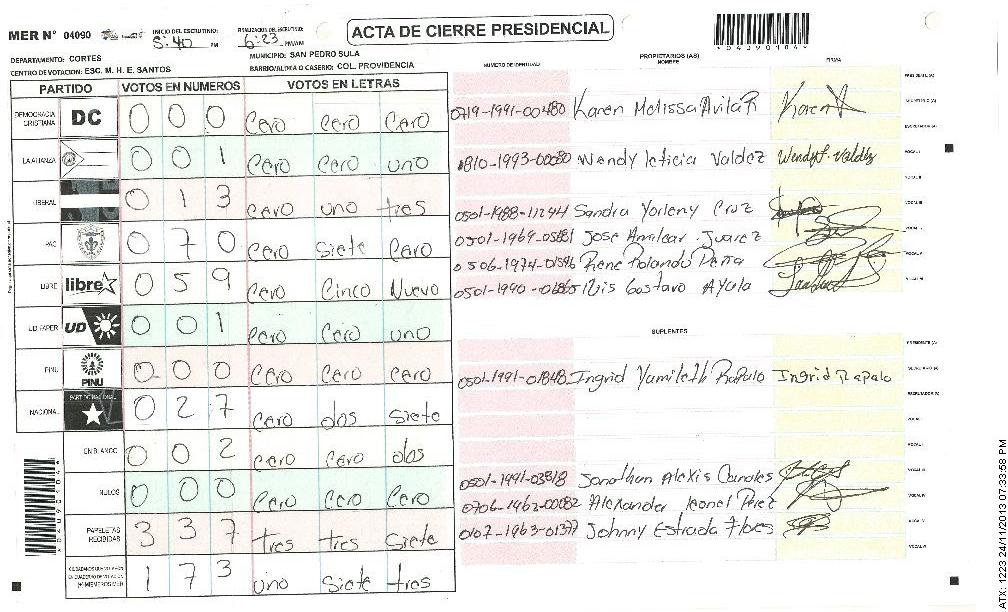 MER N° 04090
INICIO DEL ESCRUTINIO:
5:40 PM
FINALIZACION DEL ESCRUTINIO:
6:23 PM/AM
ACTA DE CIERRE PRESIDENCIAL
DEPARTAMENTO: CORTES
MUNICIPIO: SAN PEDRO SULA
CENTRO DE VOTACION: ESC. M. H. E. SANTOS
BARRIO/ALDEA O CASERIO: COL. PROVIDENCIA
PARTIDO VOTOS EN NUMEROS VOTOS EN LETRAS
DEMOCRACIA CRISTIANA DC 0 0 0 Cero Cero Cero
LA ALIANZA 0 0 1 Cero Cero uno
LIBERAL 0 1 3 Cero uno tres
PAC 0 7 0 Cero Siete Cero
LIBRE libre 0 5 9 Cero Cinco Nuevo
UD FAPER UD 0 0 1 Cero Cero uno
PINU PINU 0 0 0 Cero Cero Cero
NACIONAL PARTIDO NACIONAL 0 2 7 Cero dos Siete
EN BLANCO 0 0 2 Cero Cero dos
NULOS 0 0 0 Cero Cero Cero
PAPELETAS RECIBIDAS 3 3 7 tres tres Siete
CIUDADANOS QUE VOTARON EN CUADERNO DE VOTACION (+) MIEMBROS MER 1 7 3 uno Siete tres
*04090104*
NUMERO DE IDENTIDAD
PROPIETARIOS (AS)
NOMBRE
FIRMA
PRESIDENTE (A)
0719-1991-00480 Karen Melissa Avila R Karen SECRETARIO (A)
ESCRUTADOR (A)
1810-1993-00080 Wendy leticia Valdez Wendy l. Valdez VOCAL I
VOCAL II
0501-1988-11244 Sandra Yorleny Cruz VOCAL III
0501-1969-05881 Jose Amilcar Juarez
0506-1974-01596 Rene Rolando Peña VOCAL V
Luis Gostavo Ayala VOCAL VI
SUPLENTES
PRESIDENTE (A)
0501-1991-01848 Ingrid Yamileth Rapalo Ingrid Rapalo SECRETARIO (A)
ESCRUTADOR (A)
VOCAL I
VOCAL II
0501-1991-03818 Jonathan Alexis Canales VOCAL III
0706-1962-00082 Alexander leonel Perez VOCAL IV
0107-1963-01377 Johnny Estrada Flores VOCAL V
VOCAL VI
ATX: 1223 24/11/2013 07:33:58 PM